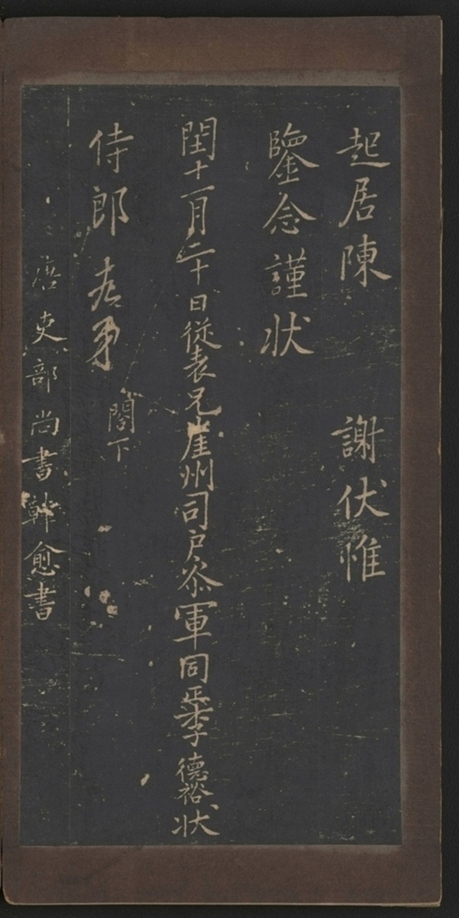 起居陳 謝伏惟
鑒念謹狀
閏十一月二十日從表兄崖州司戶叅軍同正李德裕狀
侍郎 老弟 閣下
唐吏部尚書韓愈書